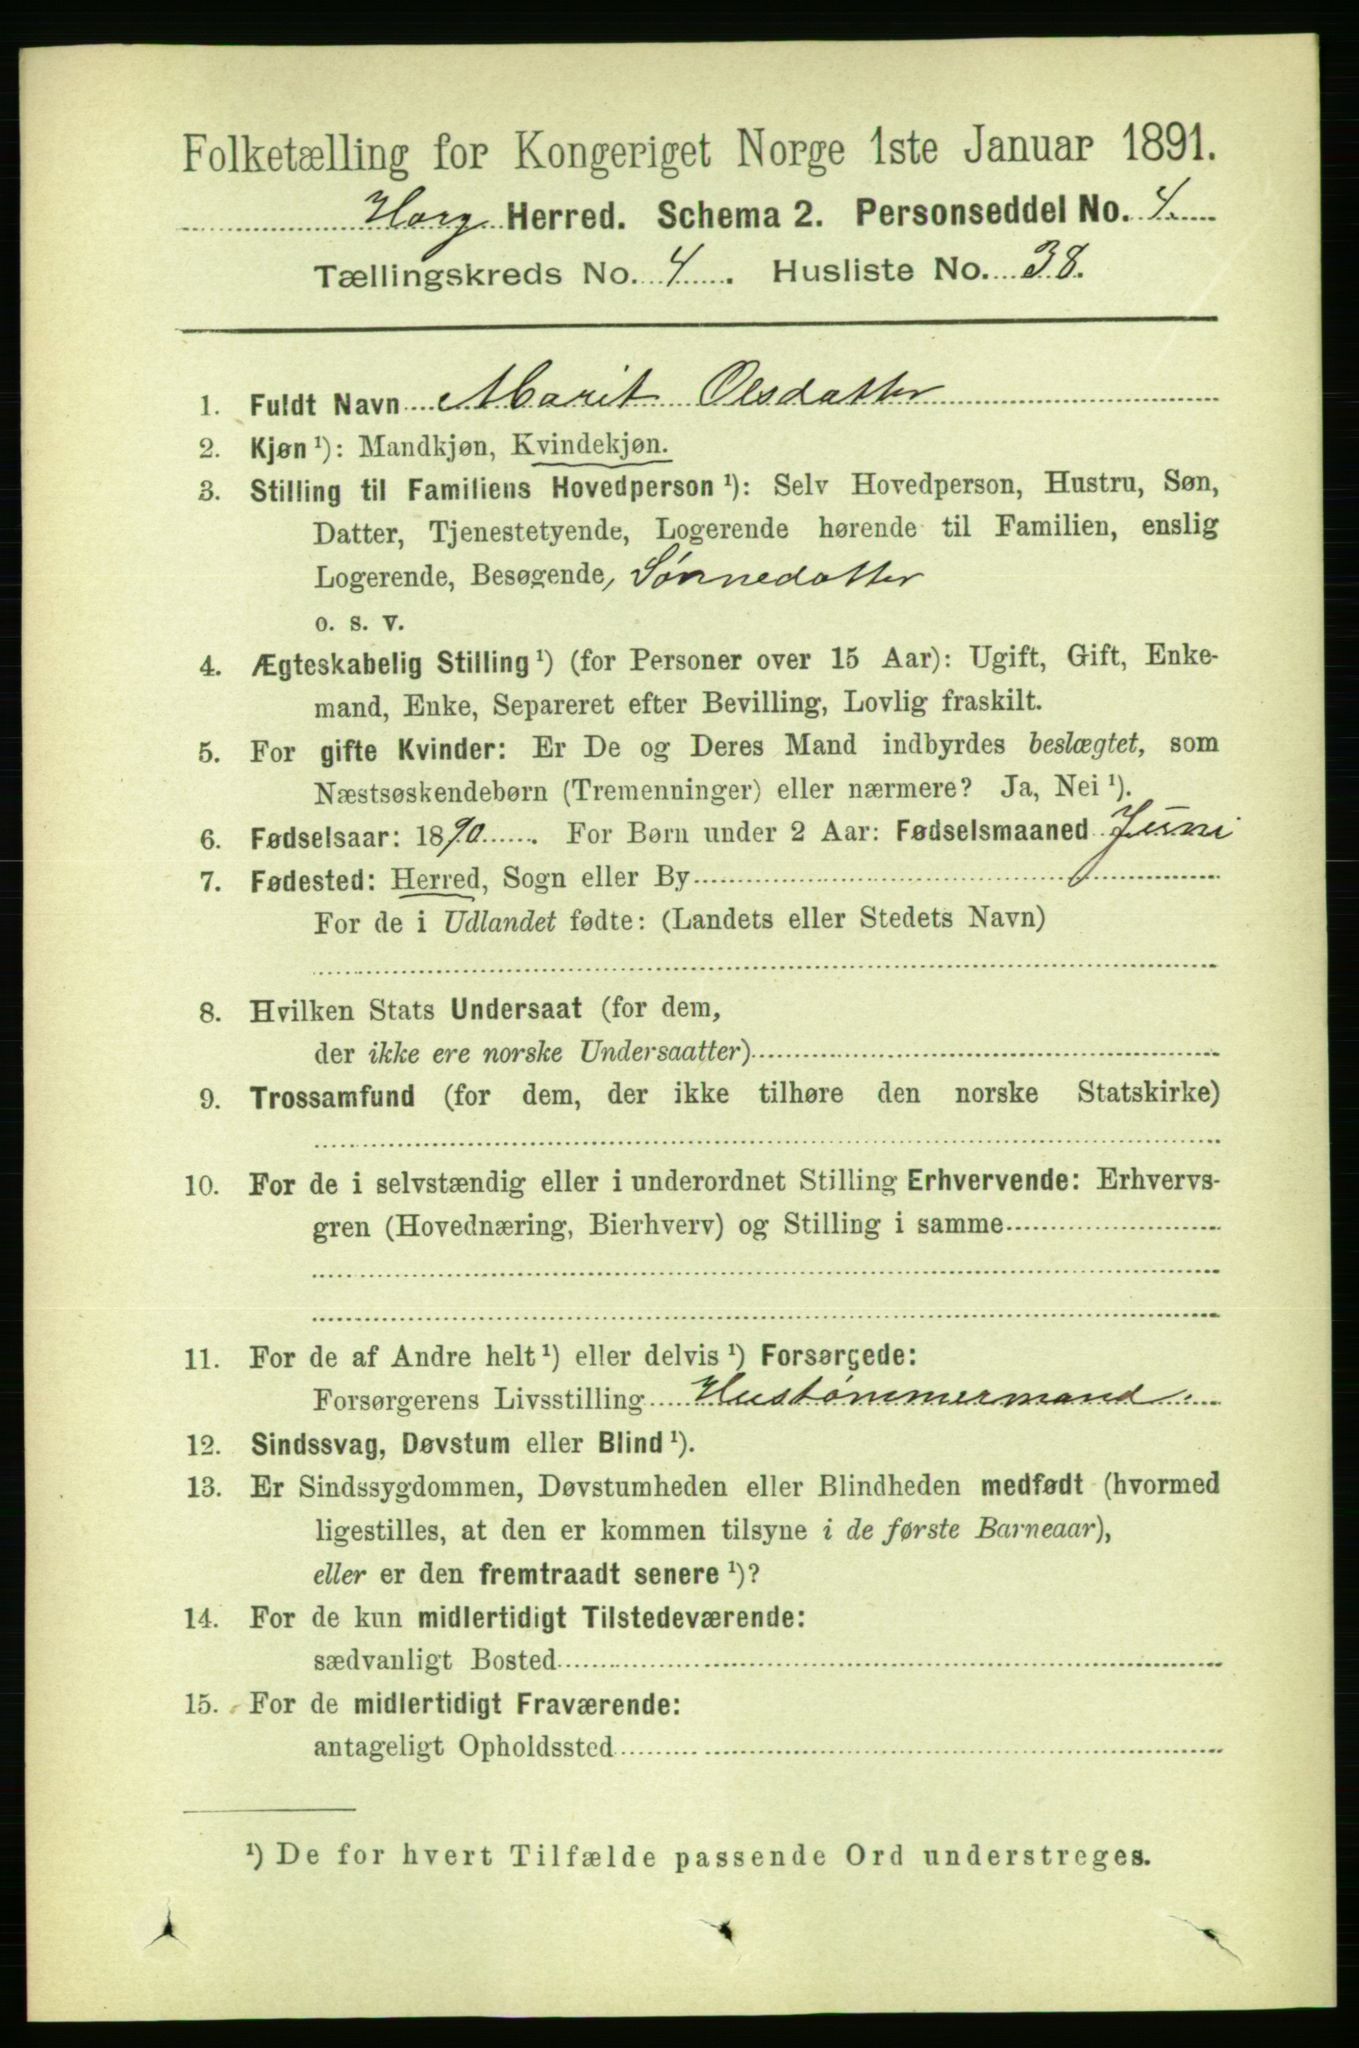 Folketælling for Kongeriget Norge 1ste Januar 1891.
Horg Herred. Schema 2. Personseddel No. 4.
Tællingskreds No. 4. Husliste No. 38.
1. Fuldt Navn Marit Olsdatter
2. Kjøn ¹): Mandkjøn, Kvindekjøn.
3. Stilling til Familiens Hovedperson ¹): Selv Hovedperson, Hustru, Søn,
Datter, Tjenestetyende, Logerende hørende til Familien, enslig
Logerende, Besøgende, Sønnedatter
o. s. v.
4. Ægteskabelig Stilling ¹) (for Personer over 15 Aar): Ugift, Gift, Enke-
mand, Enke, Separeret efter Bevilling, Lovlig fraskilt.
5. For gifte Kvinder: Er De og Deres Mand indbyrdes beslægtet, som
Næstsøskendebørn (Tremenninger) eller nærmere? Ja, Nei ¹).
6. Fødselsaar: 1890. For Børn under 2 Aar: Fødselsmaaned Juni
7. Fødested: Herred, Sogn eller By
For de i Udlandet fødte: (Landets eller Stedets Navn)
8. Hvilken Stats Undersaat (for dem,
der ikke ere norske Undersaatter)
9. Trossamfund (for dem, der ikke tilhøre den norske Statskirke)
10. For de i selvstændig eller i underordnet Stilling Erhvervende: Erhvervs-
gren (Hovednæring, Bierhverv) og Stilling i samme
11. For de af Andre helt ¹) eller delvis ¹) Forsørgede:
Forsørgerens Livsstilling Hustømmermand.
12. Sindssvag, Døvstum eller Blind ¹).
13. Er Sindssygdommen, Døvstumheden eller Blindheden medfødt (hvormed
ligestilles, at den er kommen tilsyne i de første Barneaar),
eller er den fremtraadt senere ¹)?
14. For de kun midlertidigt Tilstedeværende:
sædvanligt Bosted
15. For de midlertidigt Fraværende:
antageligt Opholdssted
¹) De for hvert Tilfælde passende Ord understreges.